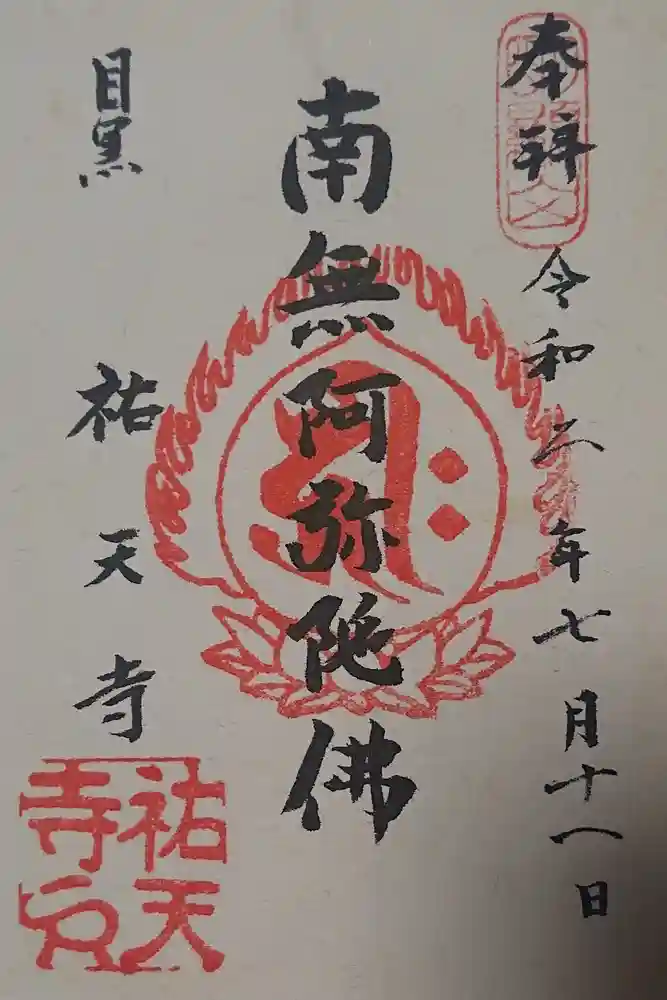 奉拝
令和二年七月十一日
南無阿弥陀佛
目黒
祐天寺
祐天
寺